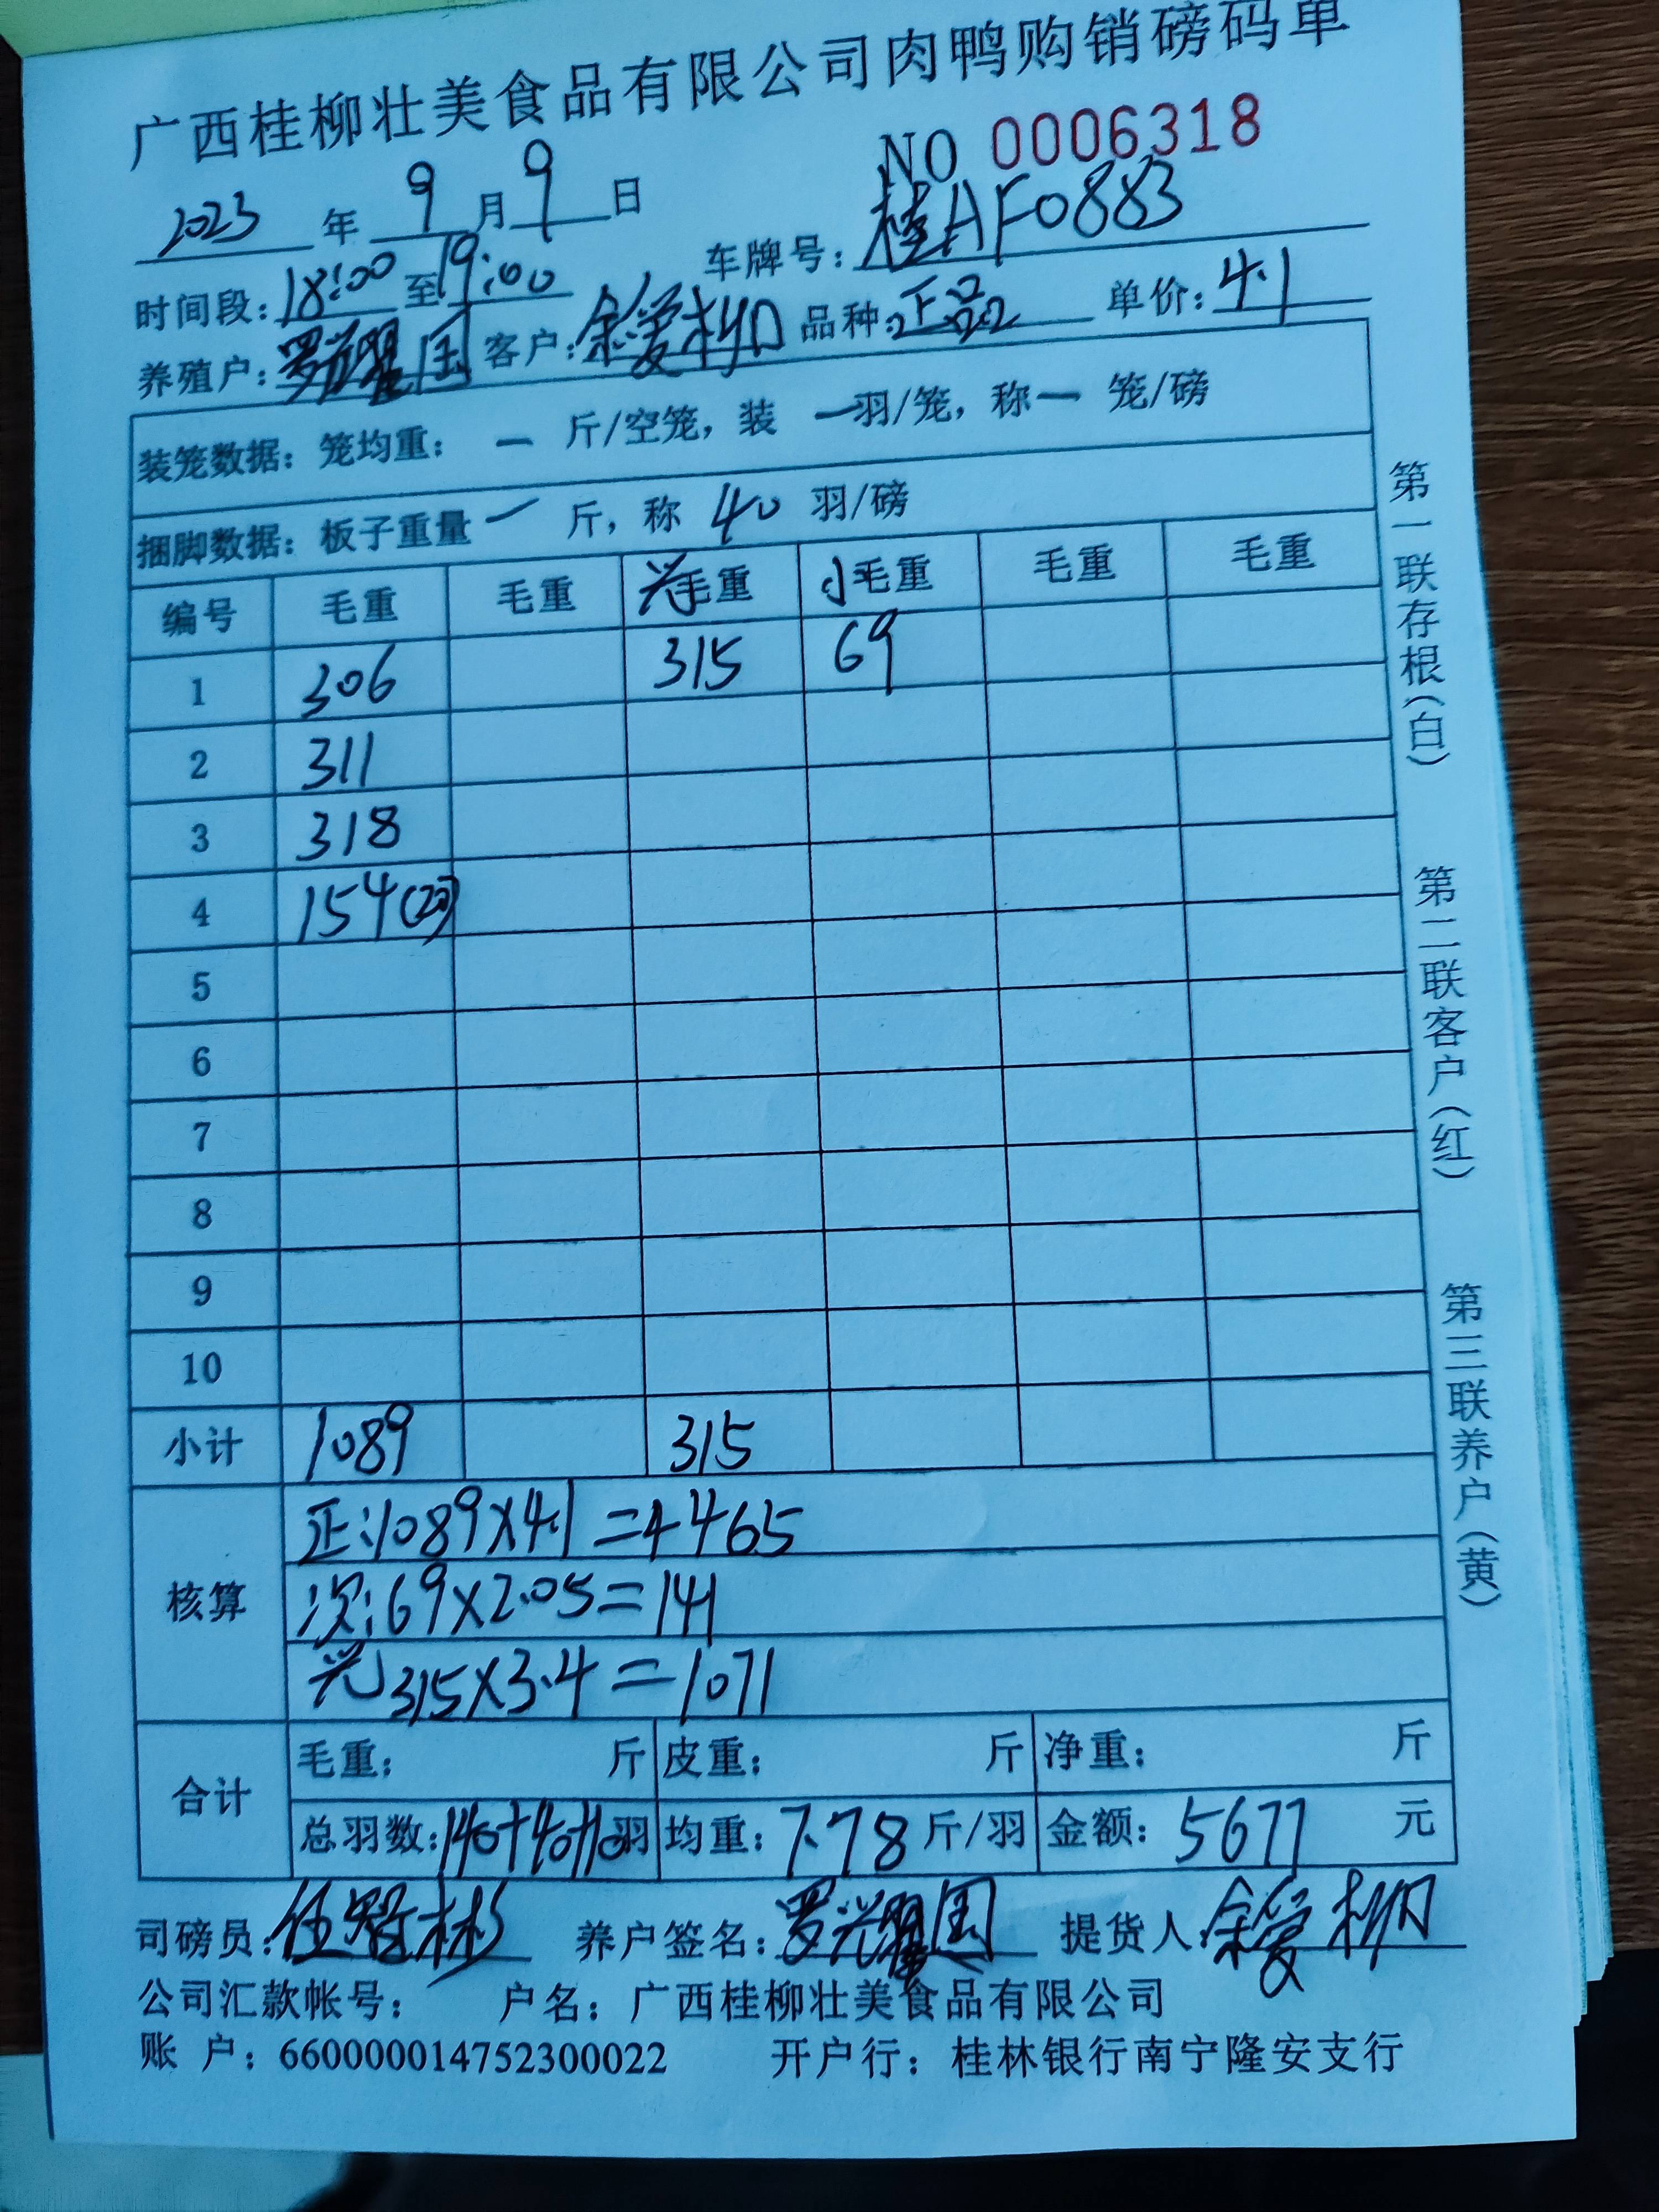 广西桂柳壮美食品有限公司肉鸭购销磅码单
NO 0006318
2023 年 9 月 9 日
车牌号: 桂AF0883
时间段: 18:00 至 19:00
养殖户: 罗兴国 客户: 余爱柳 品种: 正品 单价: 4.1
装笼数据: 笼均重: — 斤/空笼, 装 — 羽/笼, 称 — 笼/磅
捆脚数据: 板子重量 — 斤, 称 40 羽/磅
编号 毛重 毛重 毛重 小毛重 毛重 毛重
1 306 315 69
2 311
3 318
4 154(20)
5
6
7
8
9
10
小计 1089 315
核算
正:1089×4.1=4465
次:69×2.05=141
315×3.4=1071
合计
毛重: 斤 皮重: 斤 净重: 斤
总羽数: 140+40+10 羽 均重: 7.78 斤/羽 金额: 5677 元
司磅员: 养户签名: 提货人: 余爱柳
公司汇款帐号: 户名: 广西桂柳壮美食品有限公司
账 户: 660000014752300022 开户行: 桂林银行南宁隆安支行
第一联存根(白)
第二联客户(红)
第三联养户(黄)